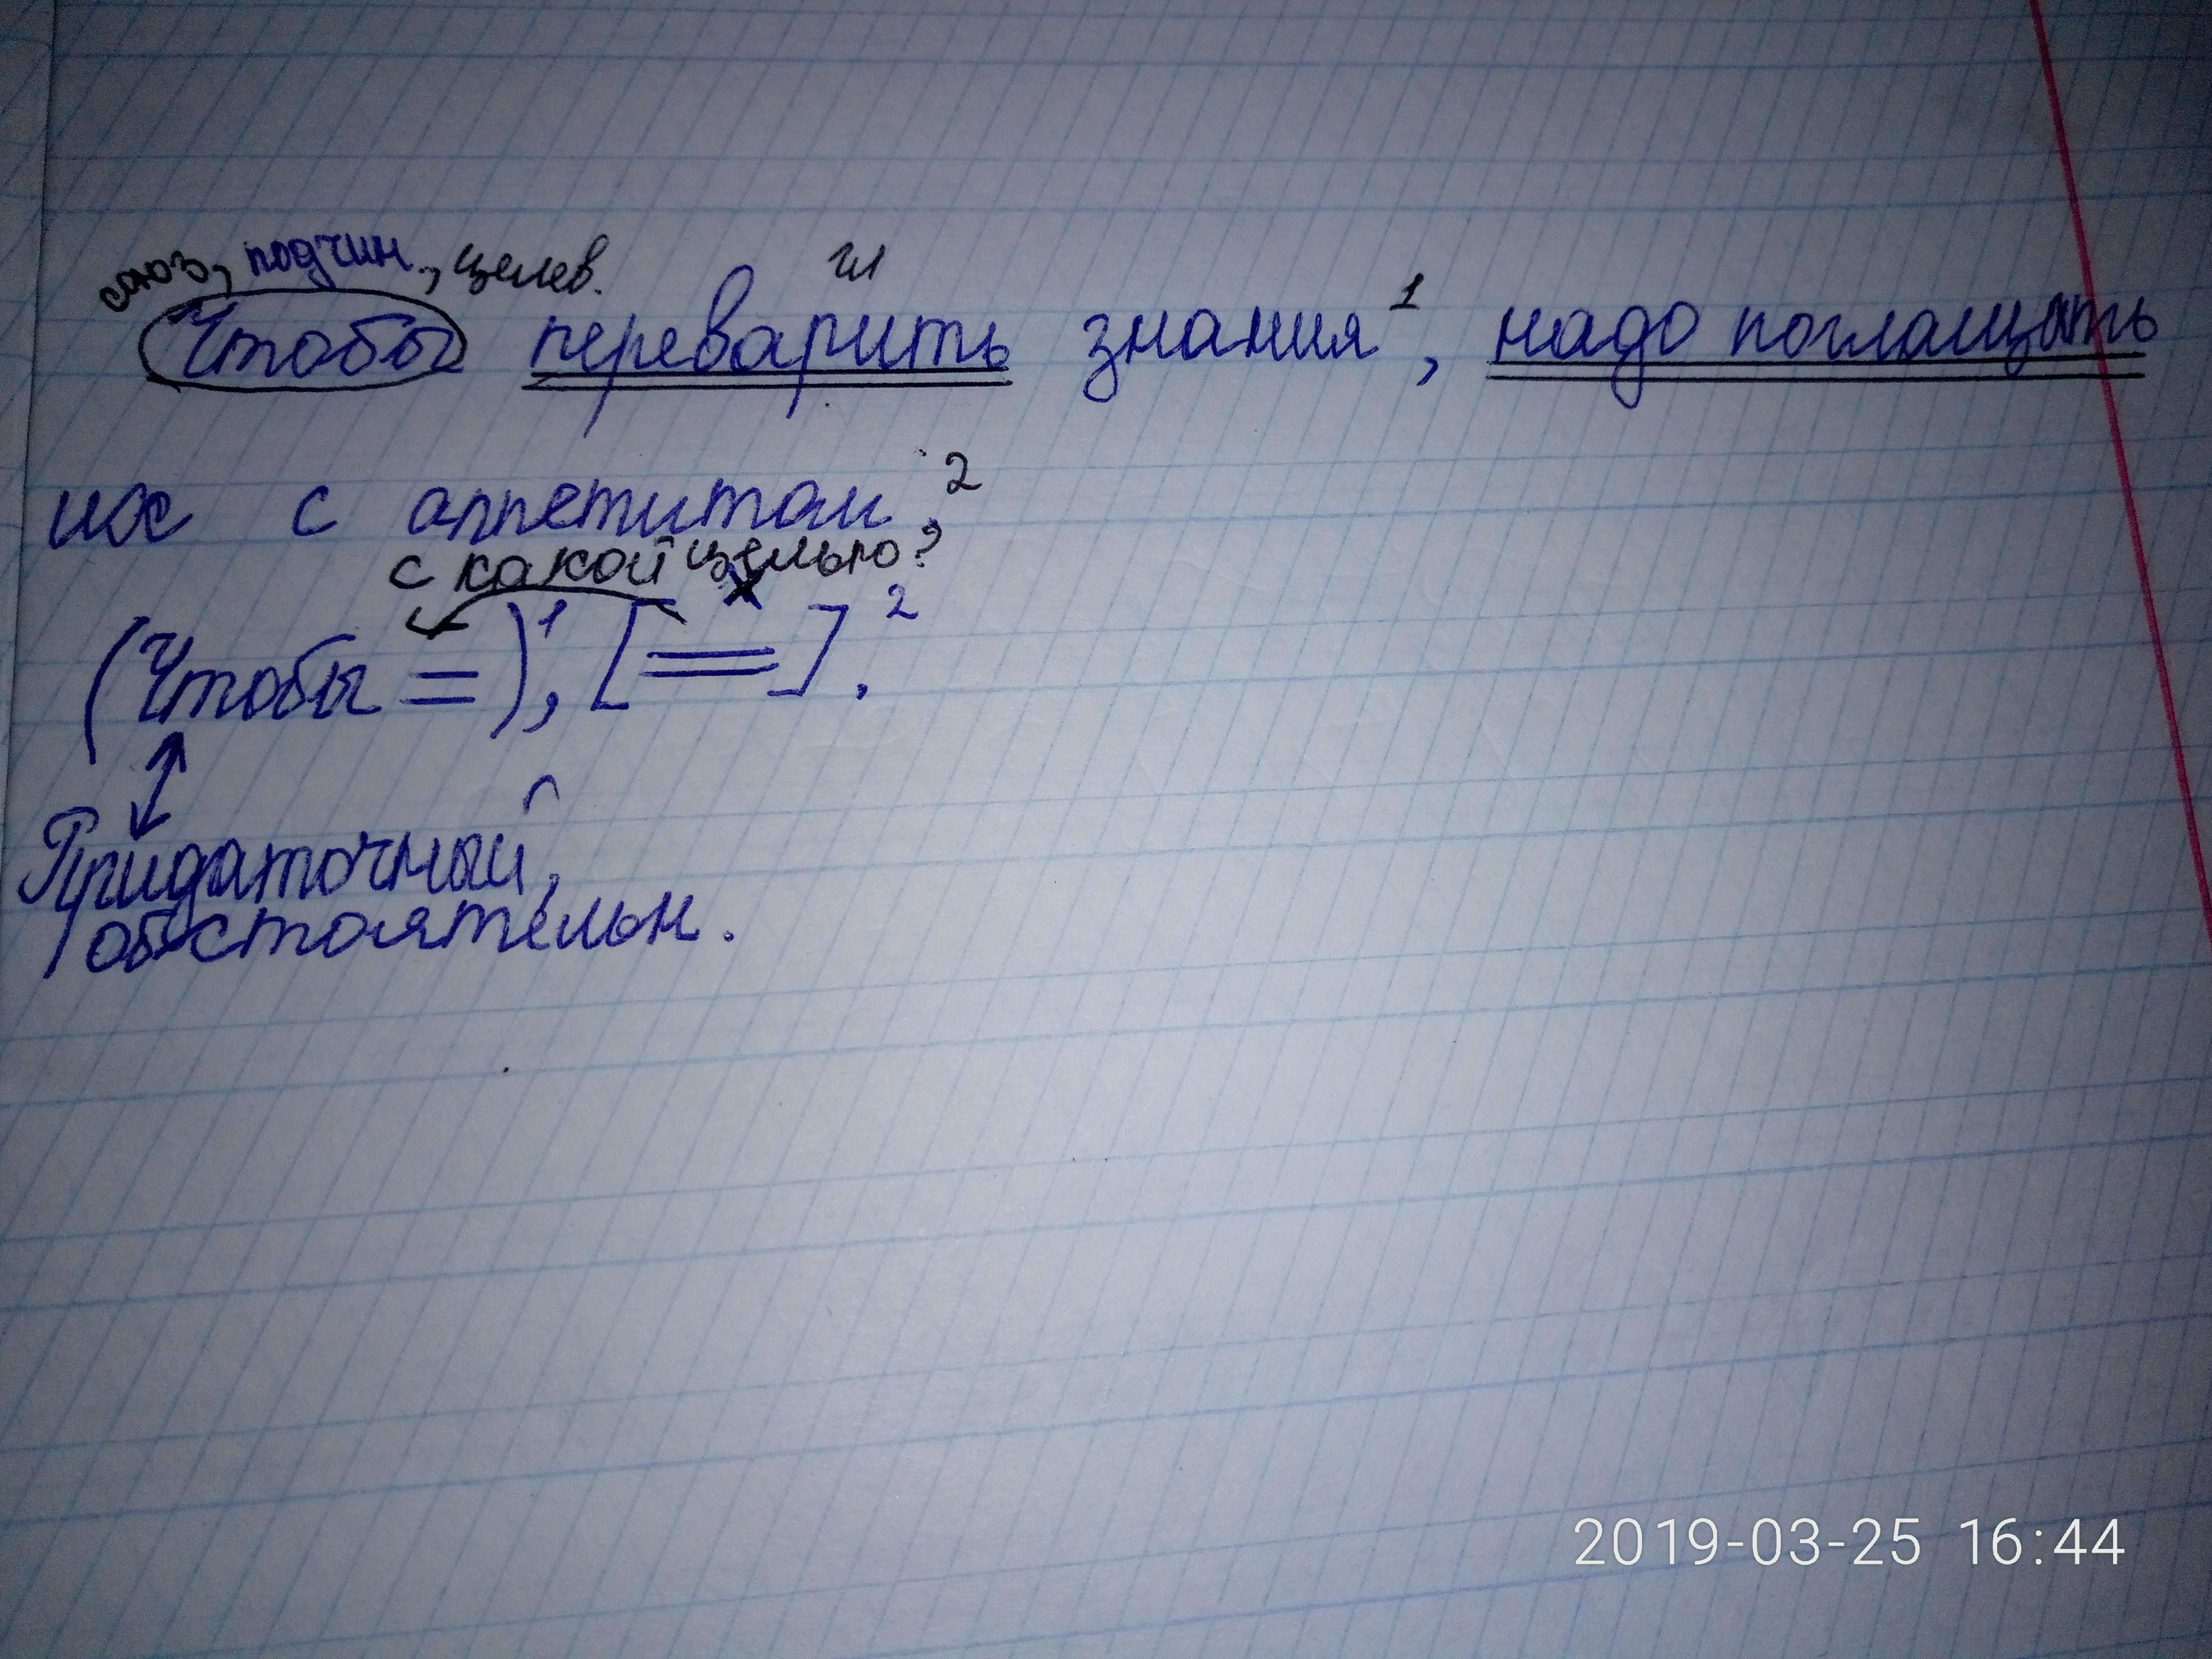 союз, подчин., целев. гл
Чтобы переварить знания¹, надо поглащать
их с аппетитом.²
с какой целью?
х
(Чтобы =)¹, [=]².
Придаточный,
обстоятельн.
2019-03-25 16:44